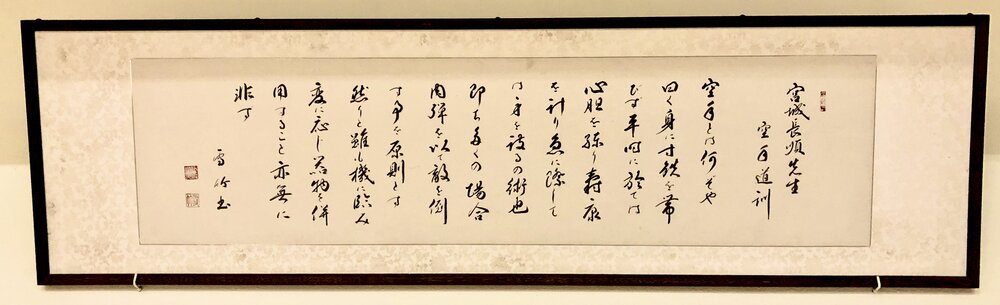 宮城長順先生
空手道訓
空手とは何ぞや
曰く身に寸鉄を帯
びず平時に於ては
心胆を練り寿康
を計り急に際して
は身を護るの術也
即ち多くの場合
肉弾を以て敵を倒
す事を原則とす
然りと雖も機に臨み
変に応じ器物を併
用すること亦無に
非ず
雪竹書